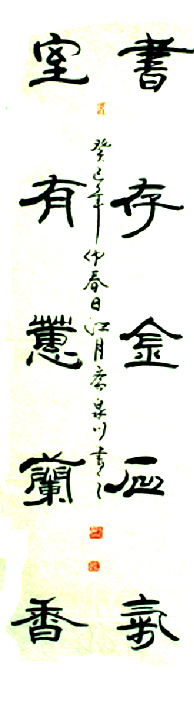 書存金石氣
室有蕙蘭香
癸巳年仲春日江月齋泉川書之